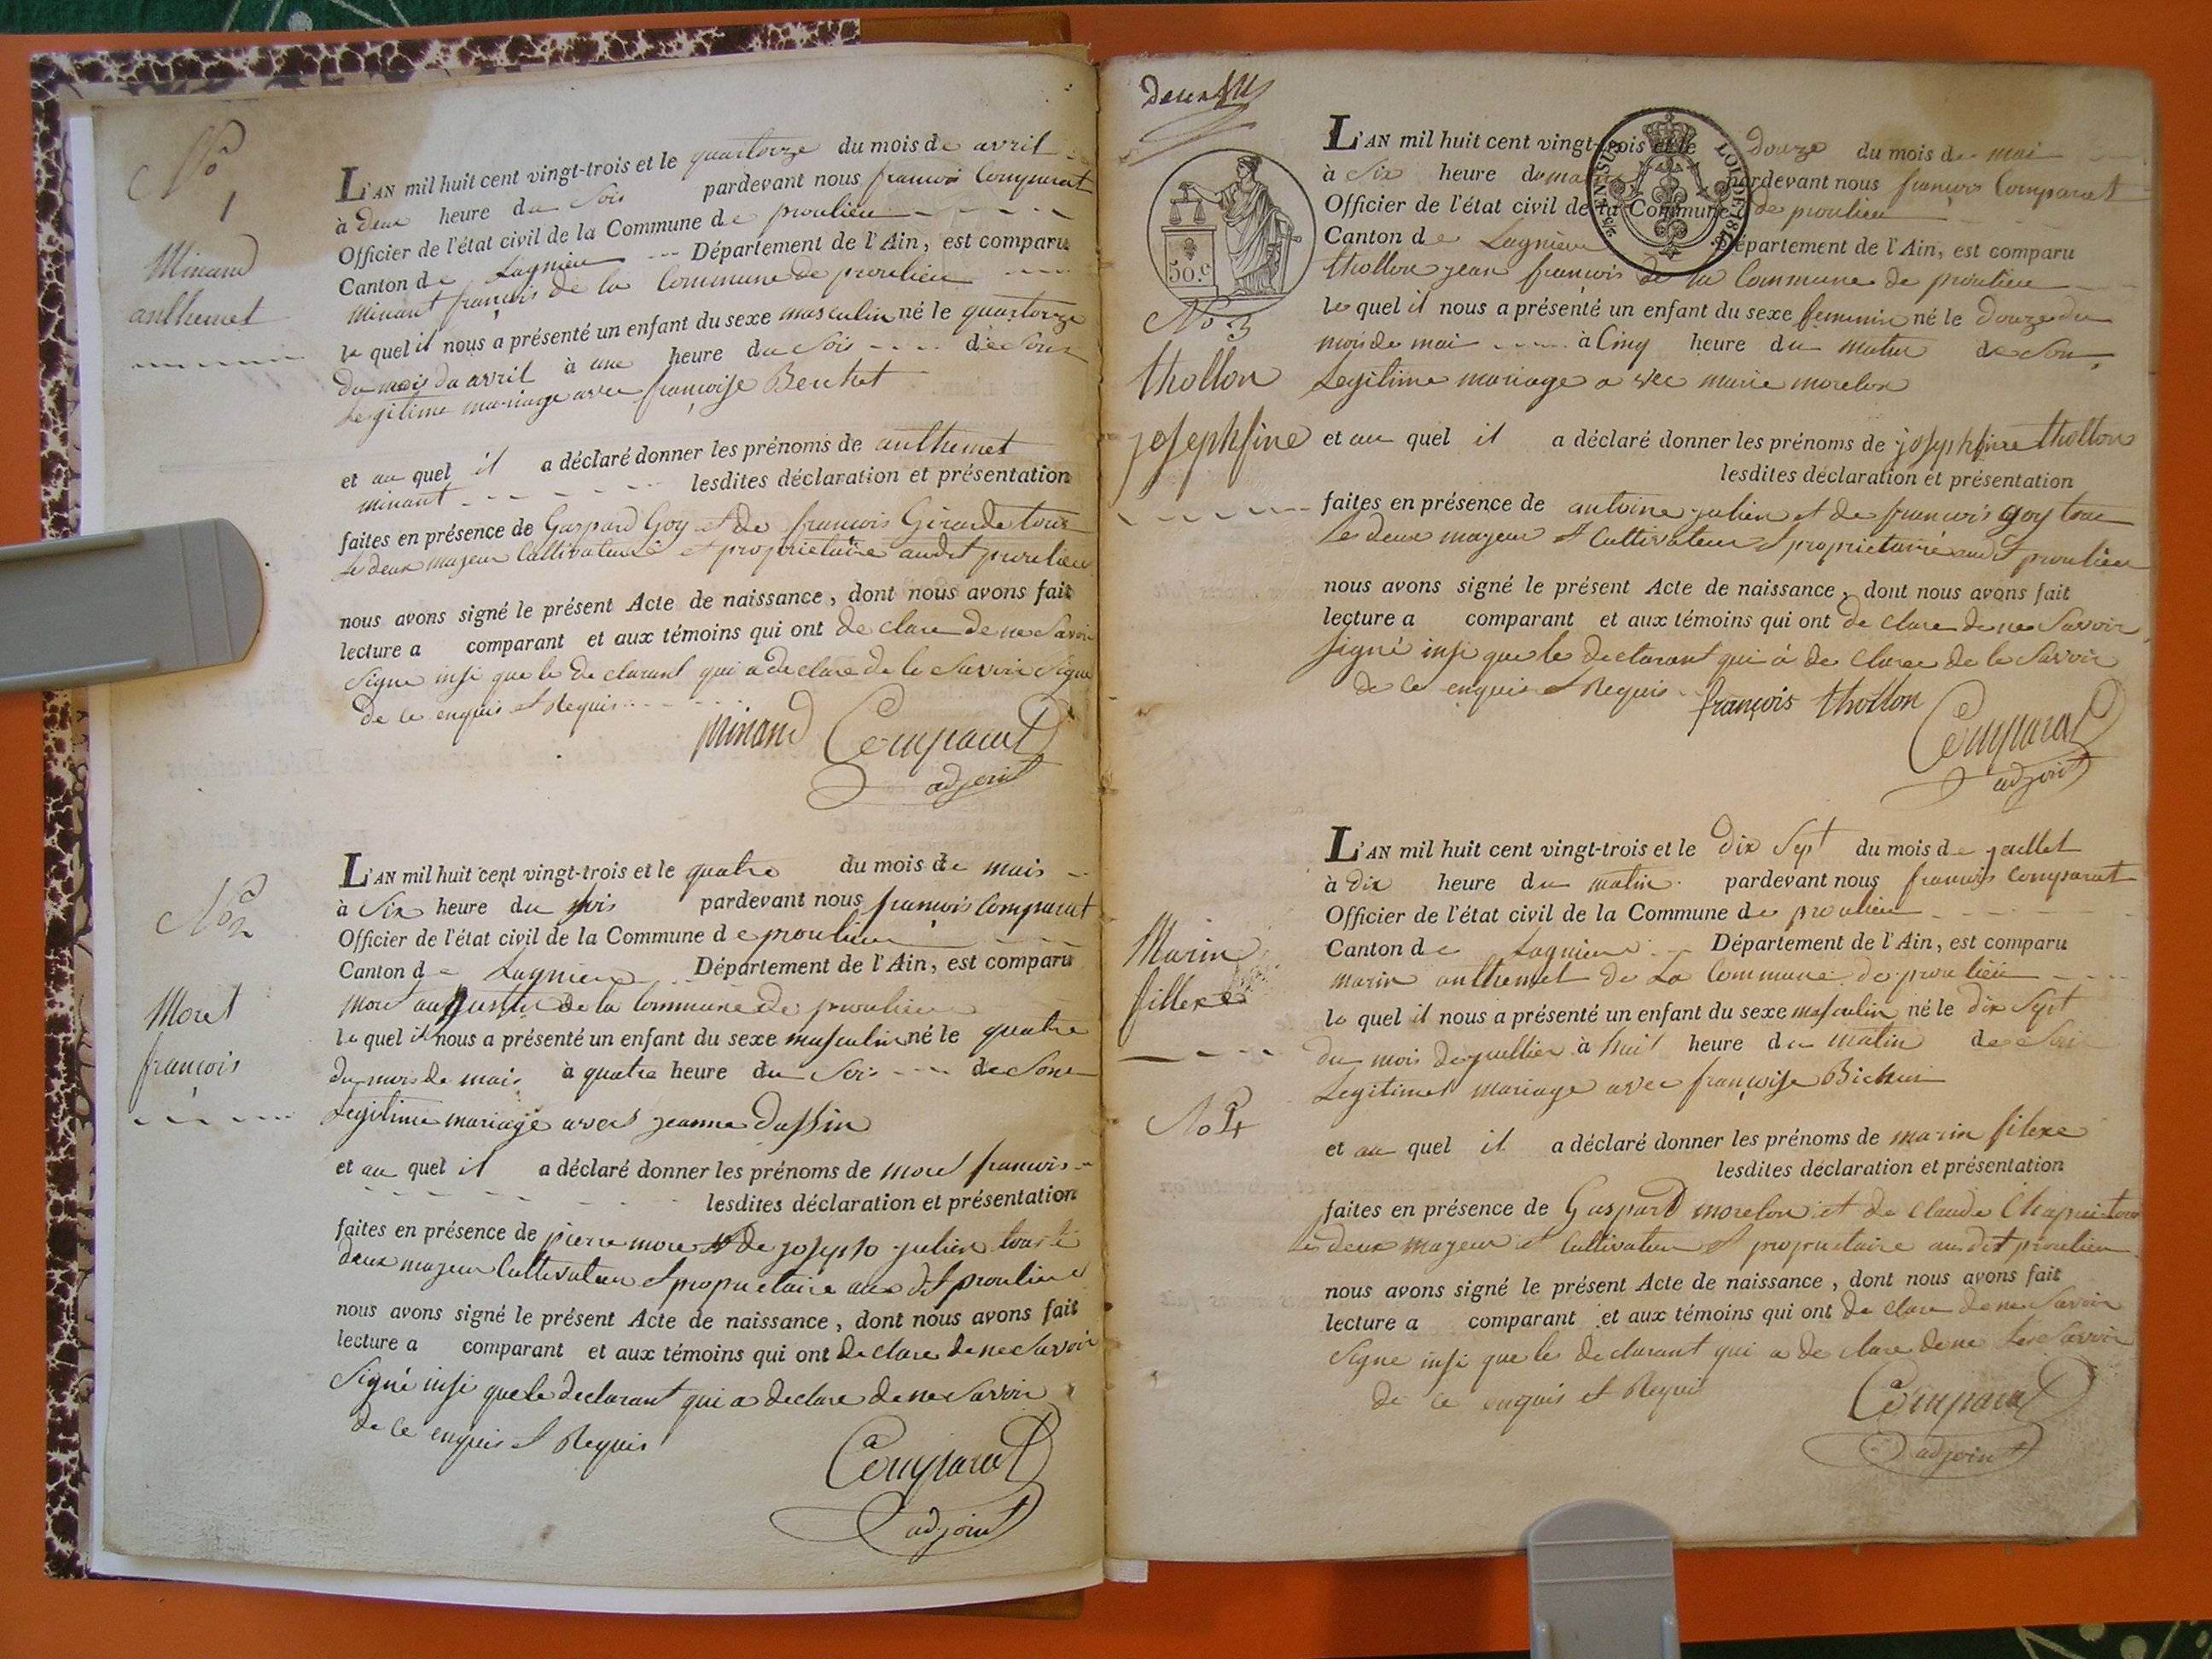 No 1
Minand
anthemet
L'AN mil huit cent vingt-trois et le quatorze du mois de avril
à deux heure du soir pardevant nous francois Comparat
Officier de l'état civil de la Commune de proulieu
Canton de Lagnieu Département de l'Ain, est comparu
minant françois de la Commune de proulieu
le quel il nous a présenté un enfant du sexe masculin né le quatorze
du mois du avril à une heure du soir de son
Legitime mariage avec françoise Berthet
et au quel il a déclaré donner les prénoms de anthemet
minant lesdites déclaration et présentation
faites en présence de Gaspard Goy et de francois Girarde tous
Le deux majeur Cultivateur et proprietaire audit proulieu
nous avons signé le présent Acte de naissance, dont nous avons fait
lecture a comparant et aux témoins qui ont de clare de ne Savoir
Signe insi que le de clarant qui a de clare de le Savoir Signe
de ce enquis et Requis
minand Comparat
adjoint
No 2
Moret
francois
L'AN mil huit cent vingt-trois et le quatre du mois de mais
à Six heure du sois pardevant nous francois Comparat
Officier de l'état civil de la Commune de proulieu
Canton de Lagnieu Département de l'Ain, est comparu
moret augustin de la Commune de proulieu
le quel il nous a présenté un enfant du sexe masculin né le quatre
du mois de mais à quatre heure du Soir de Son
Legitime mariage avec jeanne Dassin
et au quel il a déclaré donner les prénoms de moret francois
lesdites déclaration et présentation
faites en présence de pierre more et de joseph julien tous le
deux majeur Cultivateur et proprietaire aux dit proulieu
nous avons signé le présent Acte de naissance, dont nous avons fait
lecture a comparant et aux témoins qui ont de clare de ne Savoir
Signé insi que le declarant qui a declare de ne Savoir
de ce enquis et Requis
Comparat
adjoint
deux
50.c
LOI DE 1816
No 3
thollon
josephfine
L'AN mil huit cent vingt-trois et le douze du mois de mai
à Six heure du matin pardevant nous françois Comparat
Officier de l'état civil de la Commune de proulieu
Canton de Lagnieu Département de l'Ain, est comparu
thollon jean françois de la Commune de proulieu
le quel il nous a présenté un enfant du sexe feminin né le douze du
mois de mai à Cinq heure du matin de Son
Legitime mariage a vec marie morelon
et au quel il a déclaré donner les prénoms de josephfine thollon
lesdites déclaration et présentation
faites en présence de antoine julien et de francois goy tous
Le deux majeur et Cultivateur et proprietaire audit proulieu
nous avons signé le présent Acte de naissance, dont nous avons fait
lecture a comparant et aux témoins qui ont de clare de ne Savoir
signé insi que le declarant qui à de clare de le Savoir
de ce enquis et Requis
françois thollon Comparat
adjoint
Marin
fillexe
No 4
L'AN mil huit cent vingt-trois et le dix Sept du mois de juillet
à dix heure du matin pardevant nous francois Comparat
Officier de l'état civil de la Commune de proulieu
Canton de Lagnieu Département de l'Ain, est comparu
marin anthemet de La Commune de proulieu
le quel il nous a présenté un enfant du sexe masculin né le dix Sept
du mois de juillier à huit heure du matin de Son
Legitimet mariage avec françoise
et au quel il a déclaré donner les prénoms de marin filexe
lesdites déclaration et présentation
faites en présence de Gaspard morelon et de Claude Chapui tous
Le deux majeur et Cultivateur et proprietaire audit proulieu
nous avons signé le présent Acte de naissance, dont nous avons fait
lecture a comparant et aux témoins qui ont de clare de ne Savoir
Signe insi que le de clarant qui a de clare de ne Le Savoir
de ce enquis et Requis
Comparat
adjoint